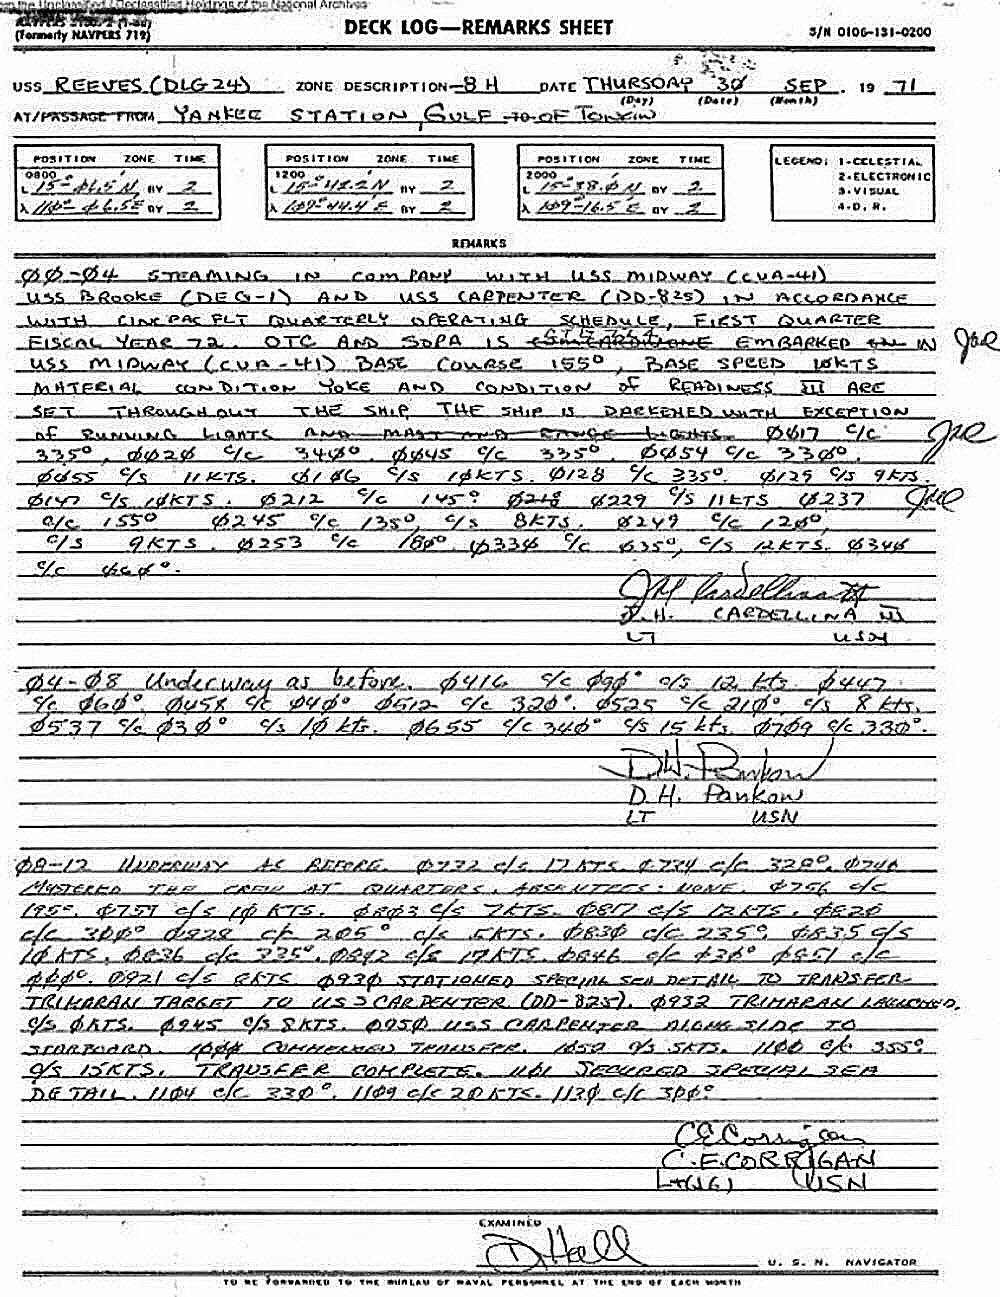 the Unclassified / Declassified Holdings of the National Archives
(Formerly NAVPERS 719)
DECK LOG—REMARKS SHEET
S/N 0106-131-0200
USS REEVES (DLG 24) ZONE DESCRIPTION -8 H DATE THURSDAY 30 SEP . 19 71
(Day) (Date) (Month)
AT/PASSAGE FROM YANKEE STATION, GULF OF TONKIN
POSITION ZONE TIME
0800
L 15°- BY 2
λ Ø6.5 E BY 2
POSITION ZONE TIME
1200
L 15°-42.2 N BY 2
λ 1Ø7°-44.4' E BY 2
POSITION ZONE TIME
2000
L 15°-38.Ø N BY 2
λ 1Ø9°-16.5' E BY 2
LEGEND: 1-CELESTIAL
2-ELECTRONIC
3-VISUAL
4-D. R.
REMARKS
ØØ-Ø4 STEAMING IN COMPANY WITH USS MIDWAY (CVA-41)
USS BROOKE (DEG-1) AND USS CARPENTER (DD-825) IN ACCORDANCE
WITH CINCPACFLT QUARTERLY OPERATING SCHEDULE, FIRST QUARTER
FISCAL YEAR 72. OTC AND SOPA IS EMBARKED IN
USS MIDWAY (CVA-41) BASE COURSE 155°, BASE SPEED 1ØKTS
MATERIAL CONDITION YOKE AND CONDITION OF READINESS III ARE
SET THROUGHOUT THE SHIP. THE SHIP IS DARKENED WITH EXCEPTION
OF RUNNING LIGHTS AND MAST AND RANGE LIGHTS. ØØ17 C/C
335°. ØØ20 C/C 340°. ØØ45 C/C 335°. ØØ54 C/C 330°.
ØØ55 C/S 11KTS. Ø1Ø6 C/S 1ØKTS. Ø128 C/C 335°. Ø129 C/S 9KTS.
Ø147 C/S 1ØKTS. Ø212 C/C 145° Ø229 C/S 11KTS Ø237
C/C 155° Ø245 C/C 135°, C/S 8KTS. Ø249 C/C 120°,
C/S 9KTS. Ø253 C/C 18Ø°. Ø33Ø C/C Ø35°, C/S 12KTS. Ø34Ø
C/C Ø6Ø°.
CARDELLINA III
LT USN
Ø4-Ø8 Underway as before. Ø416 C/C Ø9Ø° C/S 12 kts. Ø447
C/C Ø6Ø°. Ø458 C/C Ø4Ø° Ø512 C/C 320°. Ø525 C/C 21Ø°, C/S 8 kts.
Ø537 C/C Ø3Ø° C/S 1Ø kts. Ø655 C/C 34Ø° C/S 15 kts. Ø7Ø9 C/C 330°.
D.H. Pankow
D.H. Pankow
LT USN
Ø8-12 UNDERWAY AS BEFORE. Ø732 C/S 17 KTS. Ø734 C/C 320°. Ø740
MUSTERED THE CREW AT QUARTERS. ABSENTEES: NONE. Ø756 C/C
195°. Ø759 C/S 1Ø KTS. Ø8Ø3 C/S 7KTS. Ø817 C/S 12KTS. Ø820
C/C 3ØØ° Ø828 C/C 205° C/S 5KTS. Ø830 C/C 235°. Ø835 C/S
1ØKTS. Ø836 C/C 225°. Ø842 C/S 17KTS. Ø846 C/C Ø3Ø° Ø851 C/C
ØØØ°. Ø921 C/S 8KTS. Ø930 STATIONED SPECIAL SEA DETAIL TO TRANSFER
TRIMARAN TARGET TO USS CARPENTER (DD-825). Ø932 TRIMARAN LAUNCHED.
C/S ØKTS. Ø945 C/S 8KTS. Ø95Ø USS CARPENTER ALONG SIDE TO
STARBOARD. 1ØØØ COMMENCED TRANSFER. 1Ø59 C/S 5KTS. 11ØØ C/C 355°
C/S 15KTS. TRANSFER COMPLETE. 11Ø1 SECURED SPECIAL SEA
DETAIL. 11Ø4 C/C 330°. 11Ø9 C/S 2ØKTS. 113Ø C/C 3ØØ°
C E Corrigan
C.E. CORRIGAN
Lt(JG) USN
EXAMINED
D. Hall
U. S. N. NAVIGATOR
TO BE FORWARDED TO THE BUREAU OF NAVAL PERSONNEL AT THE END OF EACH MONTH